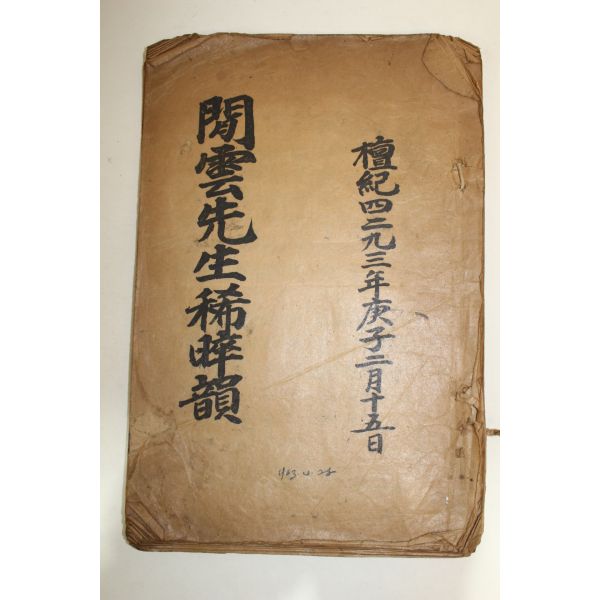 檀紀四二九三年庚子二月十五日
閒雲先生稀晬韻